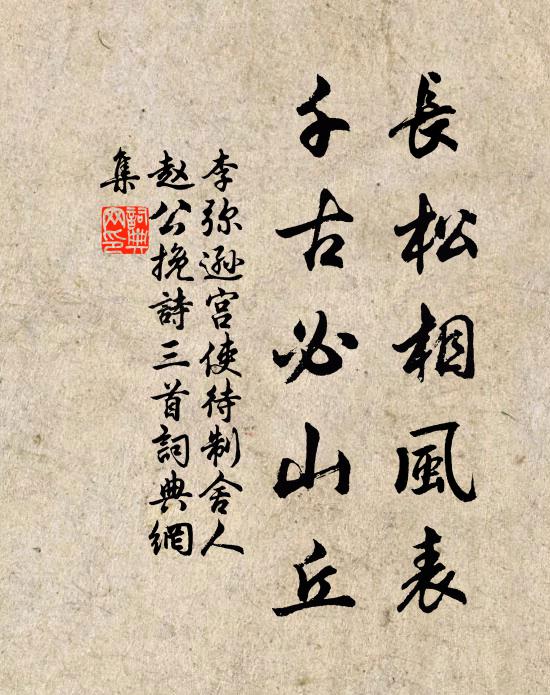 長松相風表
千古必山丘
李弥遜宫使待制舍人
赵公挽詩三首詞典網
集
詞典
网印